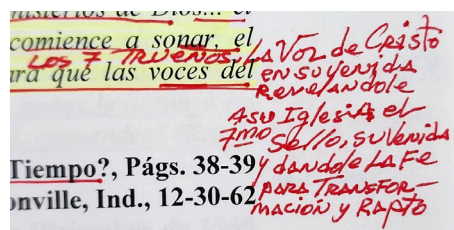 misterios de Dios... el
comience a sonar, el
LOS 7 TRUENOS
ra que las voces del
Tiempo?, Págs. 38-39
onville, Ind., 12-30-62
LA VOZ de CRISTO
EN SU VENIDA
REVELANDOLE
A SU IGLESIA el
7mo Sello, SU VENIDA
y dandole LA FE
PARA TRANSFOR-
MACIÓN y RAPTO